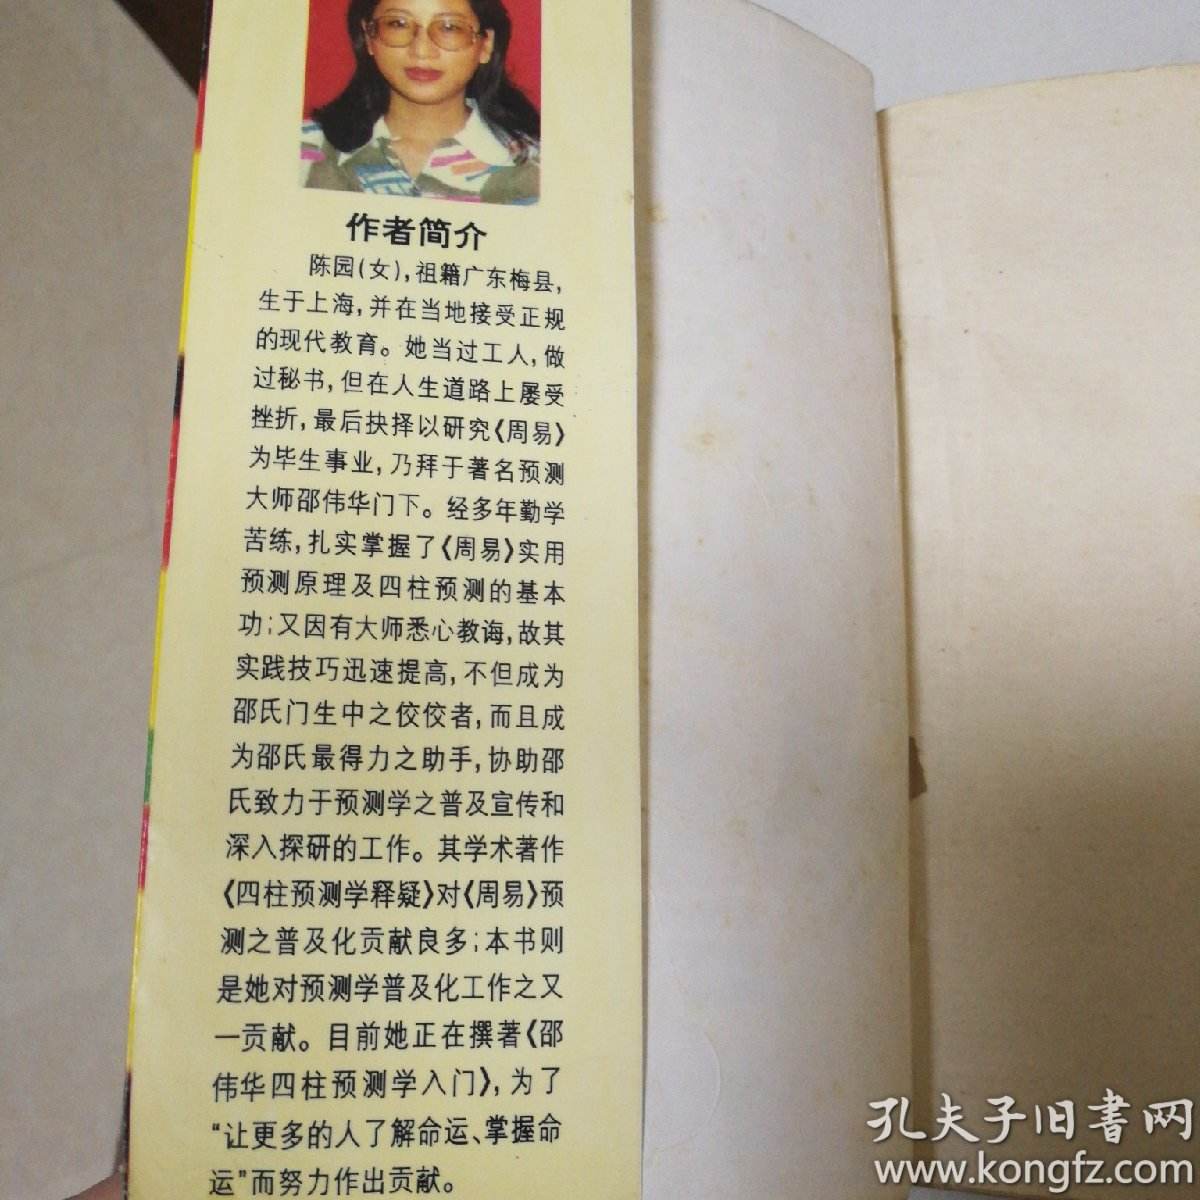 作者简介
陈园(女),祖籍广东梅县,
生于上海,并在当地接受正规
的现代教育。她当过工人,做
过秘书,但在人生道路上屡受
挫折,最后抉择以研究《周易》
为毕生事业,乃拜于著名预测
大师邵伟华门下。经多年勤学
苦练,扎实掌握了《周易》实用
预测原理及四柱预测的基本
功;又因有大师悉心教诲,故其
实践技巧迅速提高,不但成为
邵氏门生中之佼佼者,而且成
为邵氏最得力之助手,协助邵
氏致力于预测学之普及宣传和
深入探研的工作。其学术著作
《四柱预测学释疑》对《周易》预
测之普及化贡献良多;本书则
是她对预测学普及化工作之又
一贡献。目前她正在撰著《邵
伟华四柱预测学入门》,为了
“让更多的人了解命运、掌握命
运”而努力作出贡献。
孔夫子旧書网
www.kongfz.com